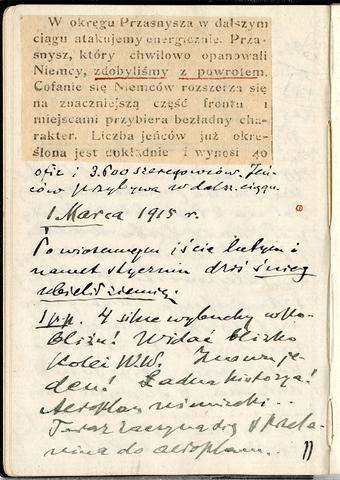 W okręgu Przasnysza w dalszym
ciągu atakujemy energicznie. Prza-
snysz, który chwilowo opanowali
Niemcy, zdobyliśmy z powrotem.
Cofanie się Niemców rozszerza się
na znaczniejszą część frontu i
miejscami przybiera bezładny cha-
rakter. Liczba jeńców już okre-
ślona jest dokładnie i wynosi 40
ofic i 3.600 szeregowców. Jeń-
ców przybywa w dalsz. ciągu.
1 Marca 1915 r.
Po wiosennym iście lutym i
nawet styczniu dziś śnieg
ubielił ziemię.
1 pp. 4 silne wybuchy w po-
bliżu! Widać blizko
Kolei W.W. Znowu je-
den! Ładna historya!
Aeroplan niemiecki..
Teraz zaczyna się strzela-
nina do aeroplanu..
11